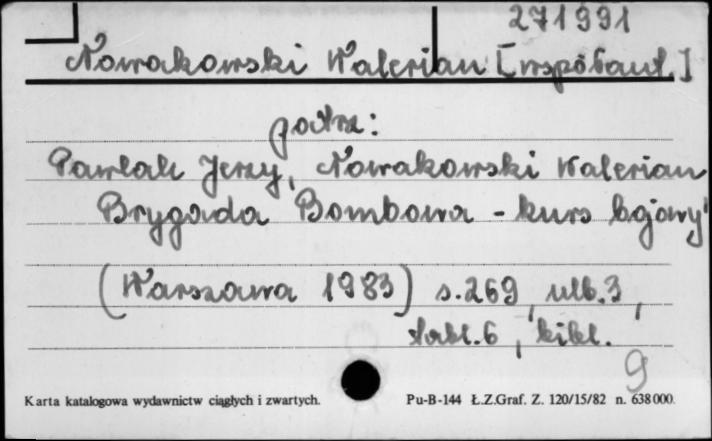 271991
Nowakowski Walerian [współaut.]
patrz:
Pawlak Jerzy, Nowakowski Walerian
Brygada Bombowa - kurs bojowy!
(Warszawa 1983) s.269, nlb.3,
tabl.6, bibl.
9
Karta katalogowa wydawnictw ciągłych i zwartych. Pu-B-144 Ł.Z.Graf. Z. 120/15/82 n. 638000.